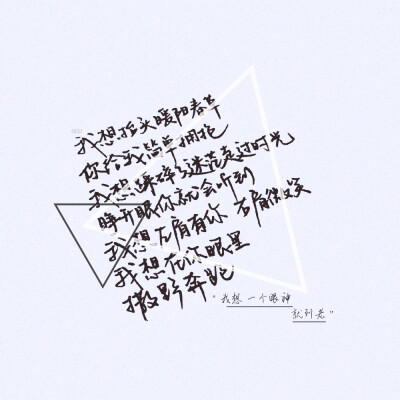 我想抬头暖阳春草
你给我简单拥抱
我想踩碎了迷茫走过时光
睁开眼你就会听到
我想左肩有你 右肩微笑
我想在你眼里
撒野奔跑
“我想一个眼神
就到老”